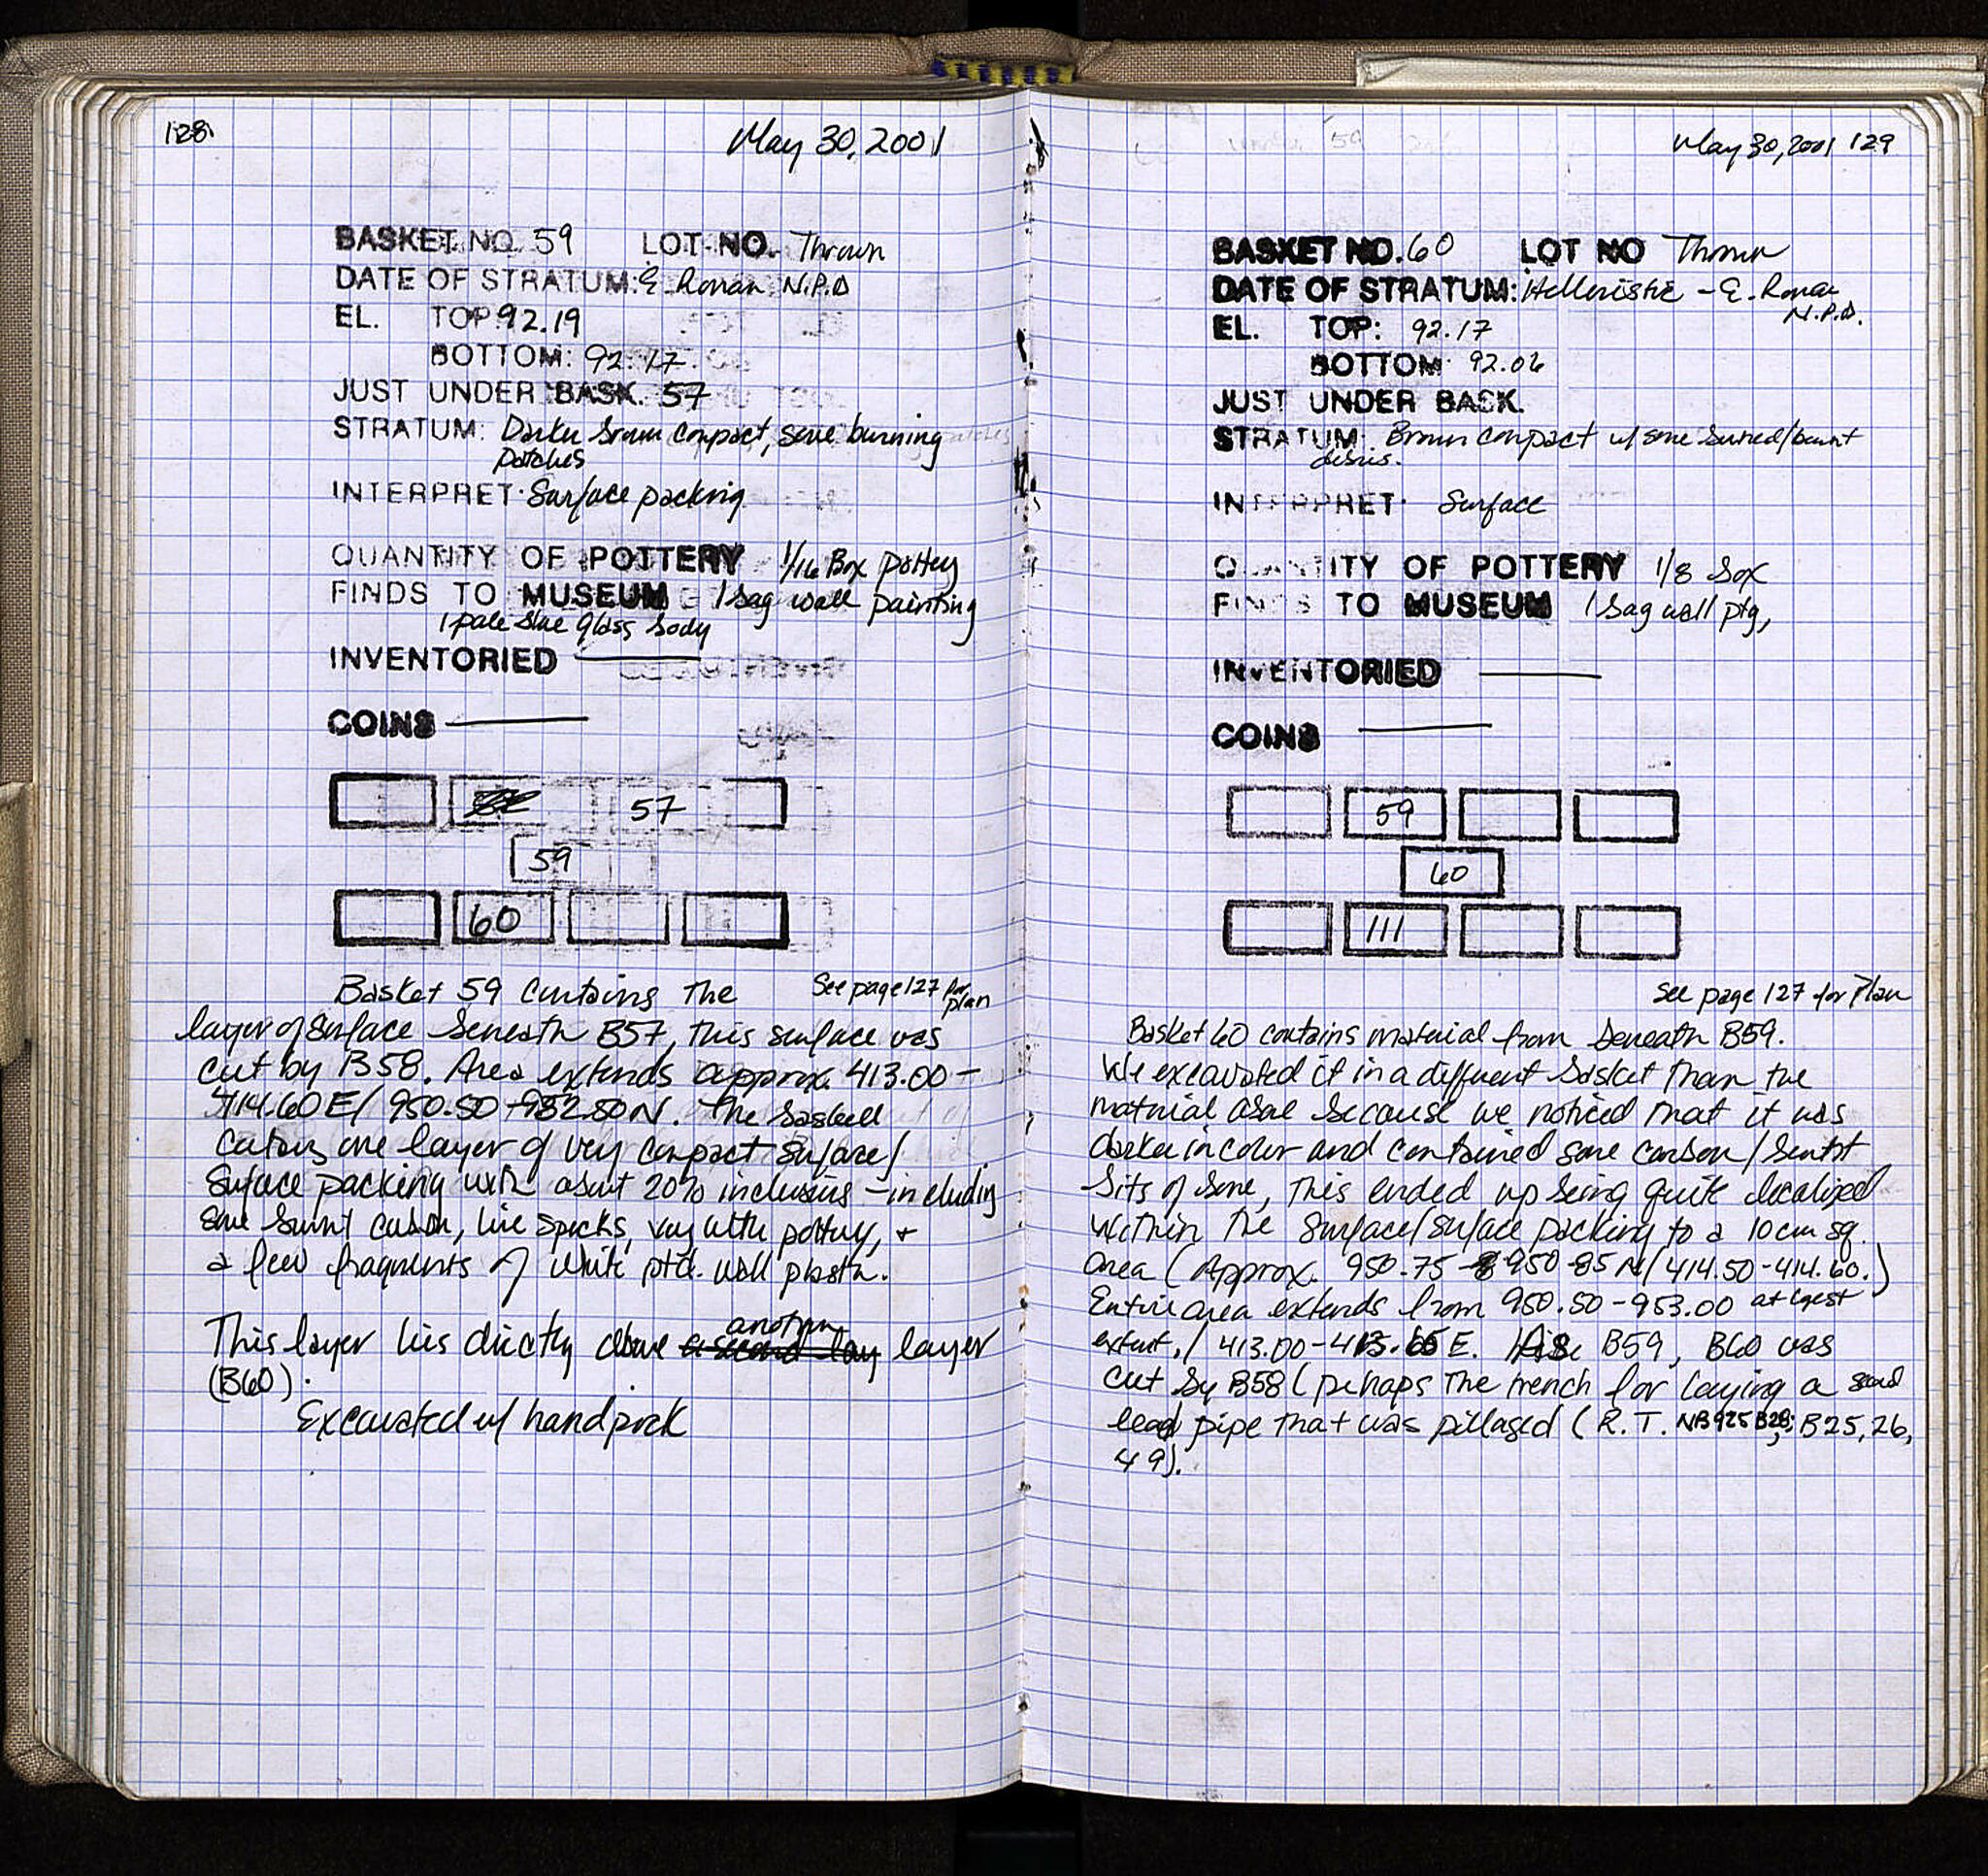 128
May 30, 2001
BASKET NO. 59 LOT NO. Thrown
DATE OF STRATUM: E Roman N.P.D
EL. TOP: 92.19
BOTTOM: 92.17
JUST UNDER BASK. 57
STRATUM: Darker brown compact, some burning
patches
INTERPRET: Surface packing
QUANTITY OF POTTERY 1/16 Box pottery
FINDS TO MUSEUM 1 bag wall painting
1 pale blue glass body
INVENTORIED
COINS
57
59
60
Basket 59 contains the See page 127 for
plan
layer of surface beneath B57, this surface was
cut by B58. Area extends approx. 413.00 -
414.60 E/ 950.50 - 952.80 N. The
one layer of very compact surface/
surface packing with about 20% inclusions - including
some burnt carbon, lime specks, very little pottery, +
a few fragments of white ptd. wall plaster.
another
This layer lies directly above a second lay layer
(B60).
Excavated w/ handpick
May 30, 2001 129
BASKET NO. 60 LOT NO Thrown
DATE OF STRATUM: Hellenistic - E. Roman
N.P.D.
EL. TOP: 92.17
BOTTOM: 92.06
JUST UNDER BASK.
STRATUM: Brown compact w/ some burned/burnt
debris.
INTERPRET: Surface
QUANTITY OF POTTERY 1/8 box
FINDS TO MUSEUM 1 bag wall ptg,
INVENTORIED
COINS
59
60
111
See page 127 for Plan
Basket 60 contains material from beneath B59.
We excavated it in a different basket than the
material above because we noticed that it was
darker in color and contained some carbon/burnt
bits of bone, this ended up being quite localized
within the surface/surface packing to a 10 cm sq.
area (Approx. 950.75 - 950.85 N/ 414.50-414.60.)
Entire area extends from 950.50-953.00 at
extent,/ 413.00- E. Like B59, B60 was
cut by B58 (perhaps the trench for laying a
lead pipe that was pillaged (R.T. NB925 B28; B25, 26,
49).